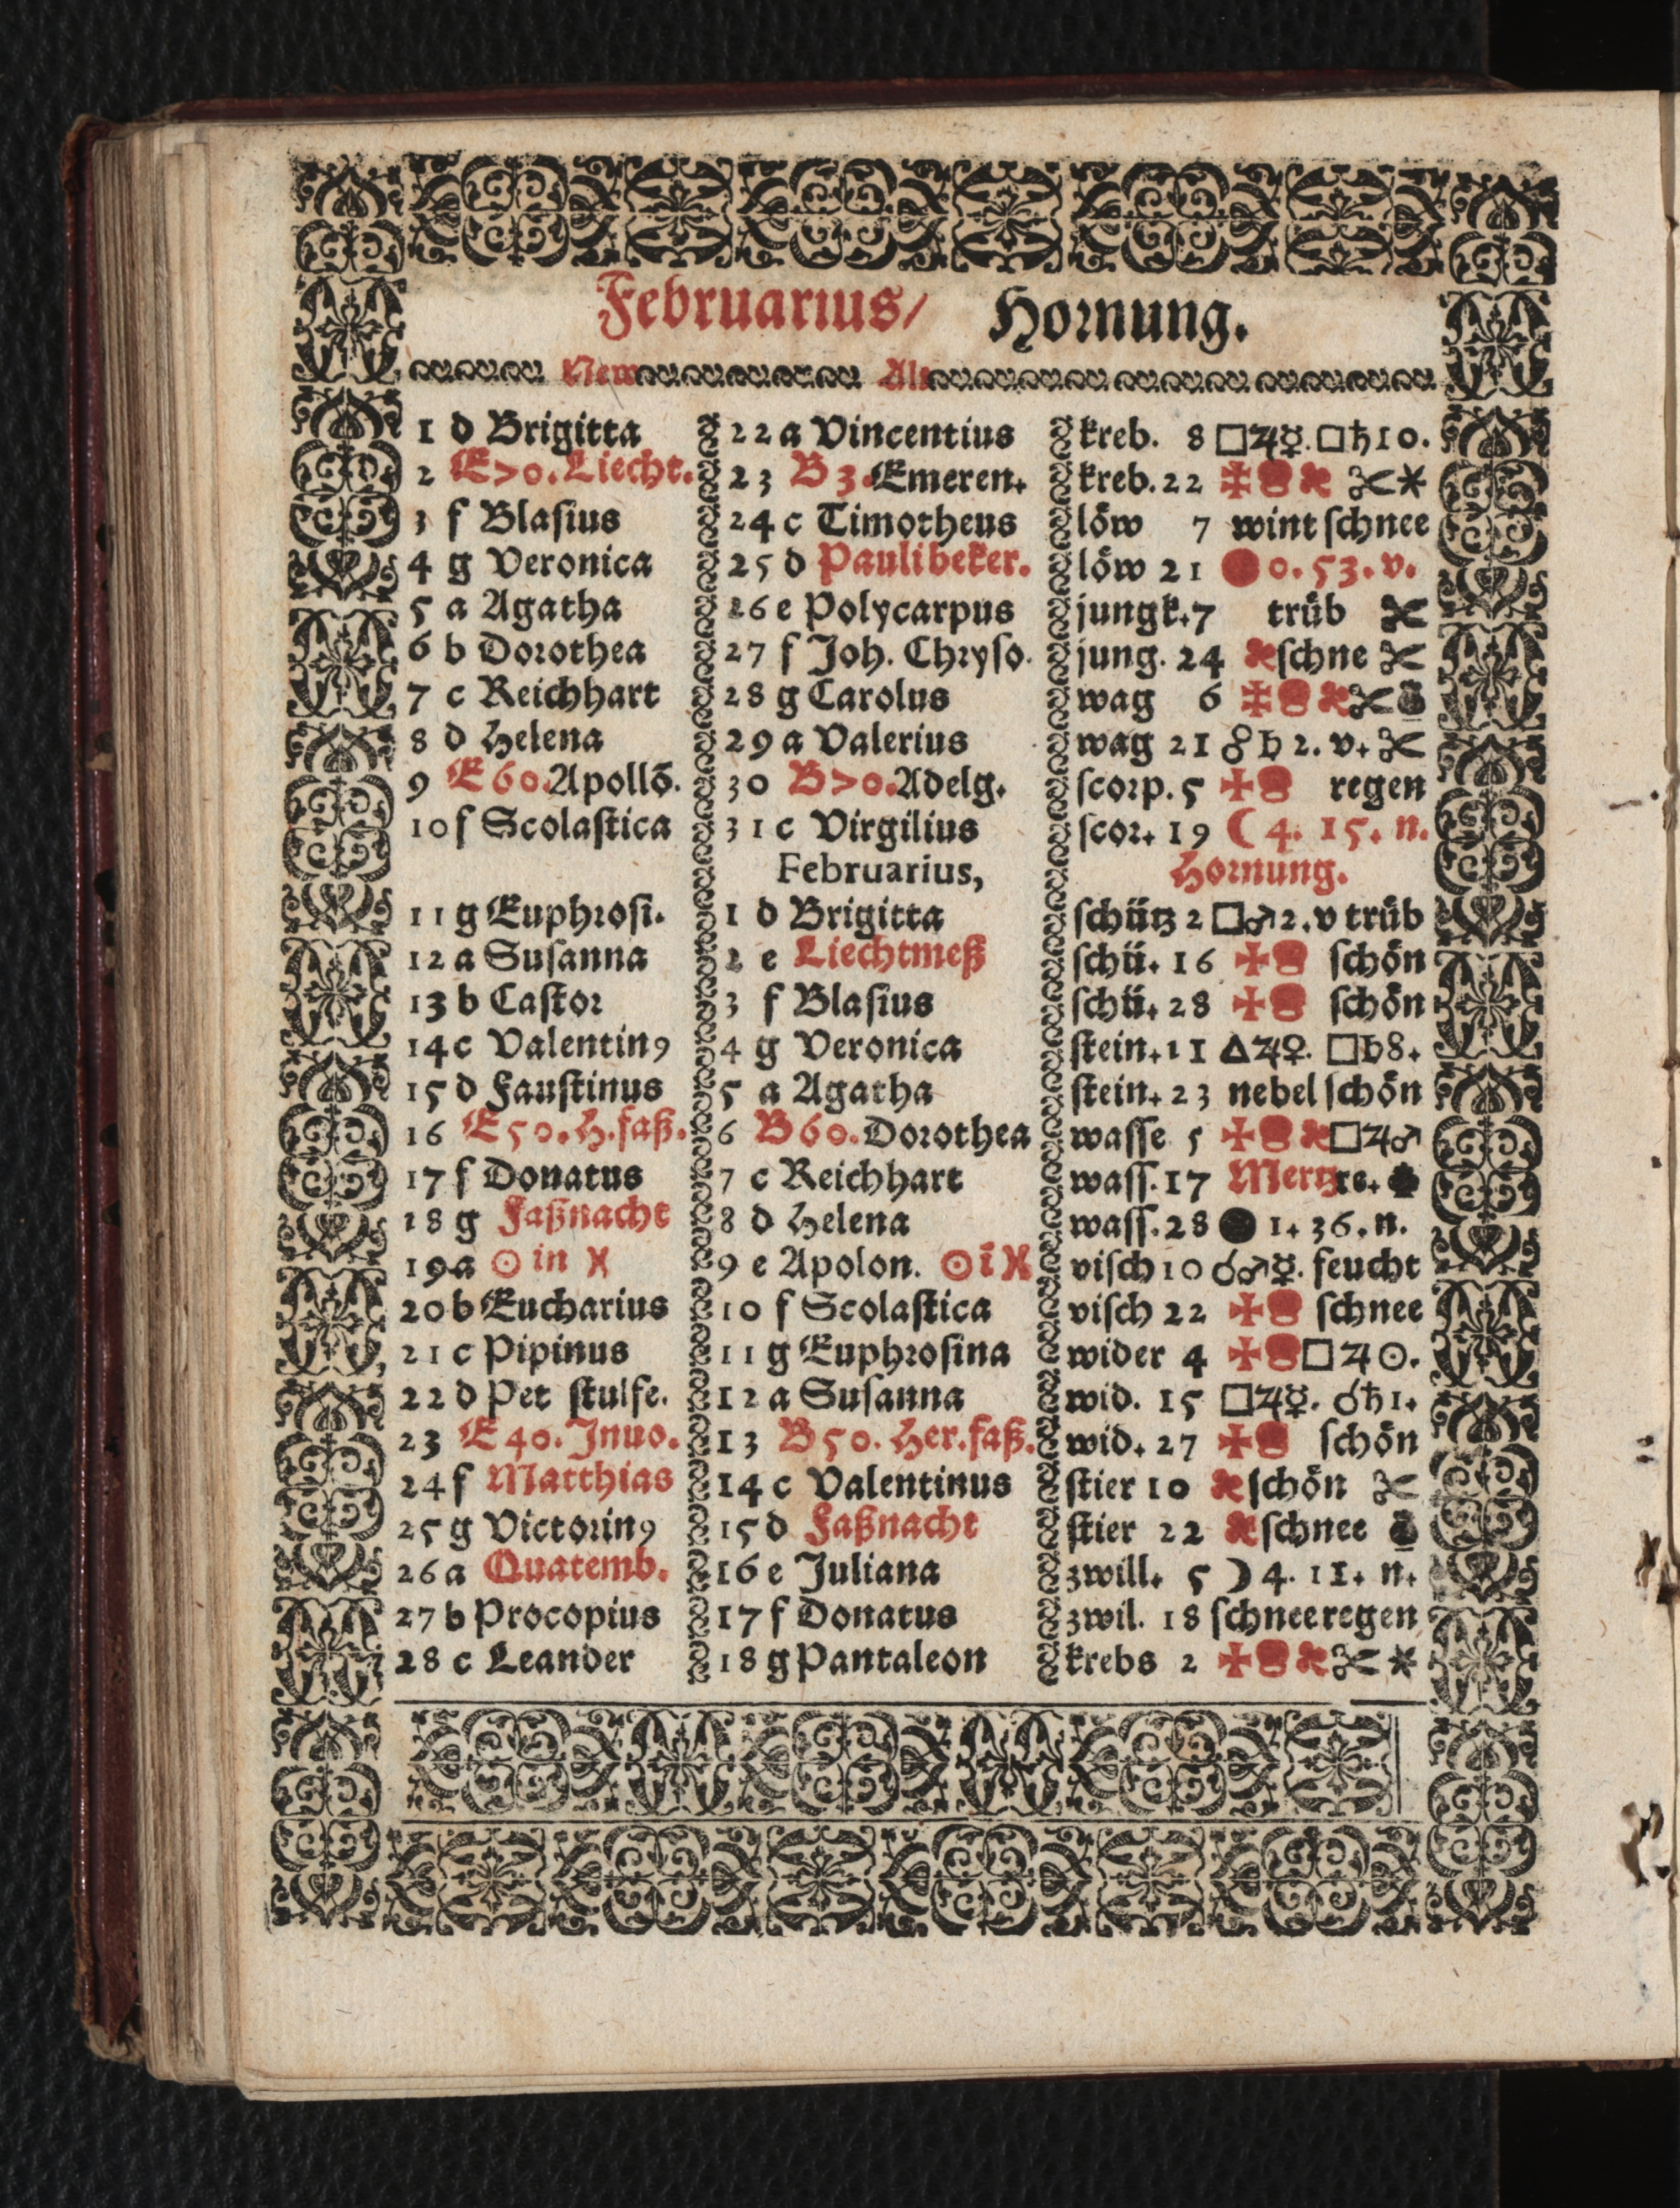 Februarius/ Hornung.
New Alt
1 d Brigitta 22 a Vincentius kreb. 8 □♃☿. □♄10.
2 E>o. Liecht. 23 B 3. Emeren. kreb. 22 ✠ ✂ *
3 f Blaſius 24 c Timotheus löw 7 wint ſchnee
4 g Veronica 25 d Pauli beker. löw 21 ● 0. 53. v.
5 a Agatha 26 e Polycarpus jungk. 7 trüb ✂
6 b Dorothea 27 f Joh. Chryſo. jung. 24 ſchne ✂
7 c Reichhart 28 g Carolus wag 6 ✠ ✂
8 d Helena 29 a Valerius wag 21 ☍ ♄ 2. v. ✂
9 E 6o. Apollõ. 30 B>o. Adelg. ſcorp. 5 ✠ regen
10 f Scolaſtica 31 c Virgilius ſcor. 19 ☾ 4. 15. n.
Februarius, Hornung.
11 g Euphroſi. 1 d Brigitta ſchütz 2 □♂2. v trüb
12 a Suſanna 2 e Liechtmeß ſchü. 16 ✠ ſchön
13 b Caſtor 3 f Blaſius ſchü. 28 ✠ ſchön
14 c Valentinꝰ 4 g Veronica ſtein. 11 △♃♀. □♄8.
15 d Fauſtinus 5 a Agatha ſtein. 23 nebel ſchön
16 E 5o. H. faß. 6 B 6o. Dorothea waſſe 5 ✠ □♃♂
17 f Donatus 7 c Reichhart waſſ. 17 Mertzre.
18 g Faßnacht 8 d Helena waſſ. 28 ● 1. 36. n.
19 a ☉ in ♓ 9 e Apolon. ☉ ī ♓ viſch 10 ☌♂☿. feucht
20 b Eucharius 10 f Scolaſtica viſch 22 ✠ ſchnee
21 c Pipinus 11 g Euphroſina wider 4 ✠ □ ♃ ☉.
22 d Pet ſtulfe. 12 a Suſanna wid. 15 □♃☿. ☌♄1.
23 E 4o. Jnuo. 13 B 5o. Her. faß. wid. 27 ✠ ſchön
24 f Matthias 14 c Valentinus ſtier 10 ſchön ✂
25 g Victorinꝰ 15 d Faßnacht ſtier 22 ſchnee
26 a Quatemb. 16 e Juliana zwill. 5 ☽ 4. 11. n.
27 b Procopius 17 f Donatus zwil. 18 ſchnee regen
28 c Leander 18 g Pantaleon krebs 2 ✠ ✂ *